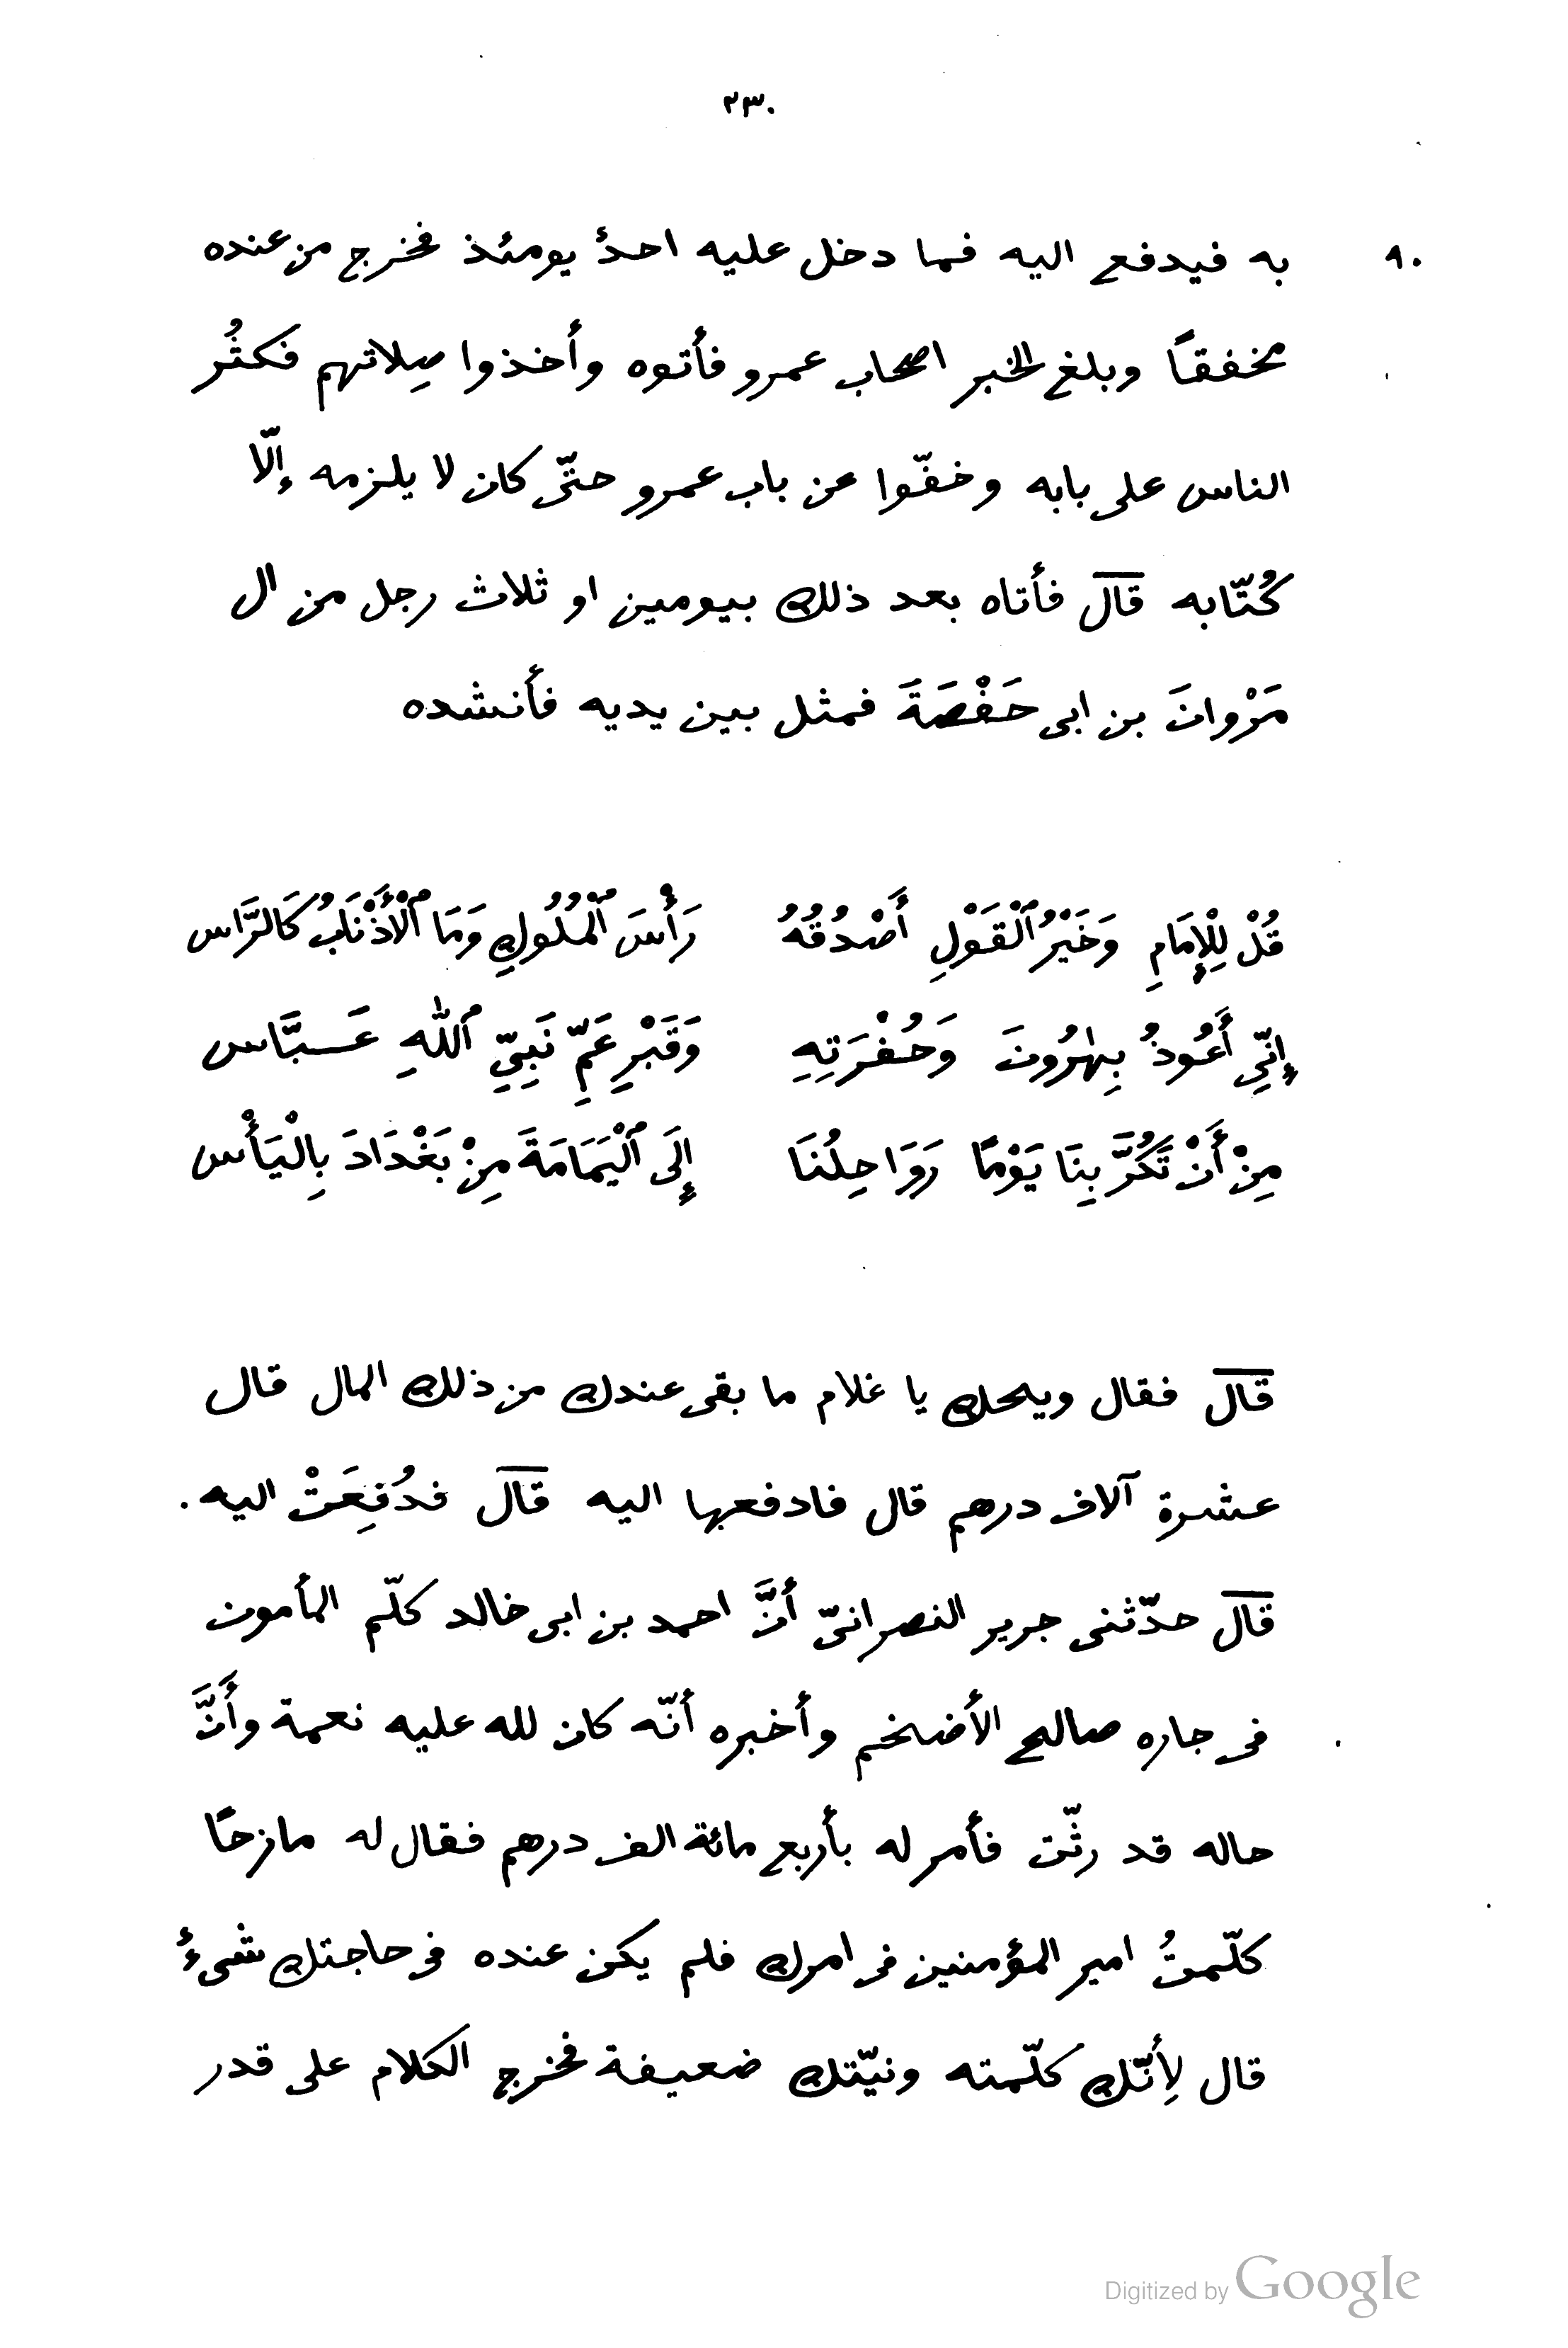 ٢٣٠
٩٠
به فيدفع اليه فما دخل عليه احدٌ يومئذ فخرج من عنده
مخفقًا وبلغ الخبر اصحاب عمرو فأتوه وأخذوا صِلاتهم فكثُر
الناس على بابه وخفّوا عن باب عمرو حتّى كان لا يلزمه إلّا
كُتّابه قال فأتاه بعد ذلك بيومين او ثلاث رجل من ال
مَرْوانَ بن ابى حَفْصَةَ فمثل بين يديه فأنشده
قُلْ لِلْإِمَامِ وَخَيْرُ ٱلْقَوْلِ أَصْدُقُهُ رَأْسَ ٱلْمُلُوكِ وَمَا ٱلْأَذْنَابُ كَالرَّاسِ
إِنِّي أَعُوذُ بِهٰرُونَ وَحُفْرَتِهِ وَقَبْرِ عَمِّ نَبِيِّ ٱللهِ عَبَّاس
مِنْ أَنْ تَكُرَّ بِنَا يَوْمًا رَوَاحِلُنَا إِلَى ٱلْيَمَامَةَ مِنْ بَغْدَادَ بِالْيَأْس
قال فقال ويلحك يا غلام ما بقى عندك من ذلك المال قال
عشرة آلاف درهم قال فادفعها اليه قال فدُفِعَتْ اليه .
قال حدّثنى جرير النصرانىّ أنَّ احمد بن ابى خالد كلّم المأمون
فى جاره صالح الأضخم وأخبره أنّه كان لله عليه نعمة وأَنَّ
حاله قد رثّت فأمر له بأربع مائة الف درهم فقال له مازحًا
كلّمتُ امير المؤمنين فى امرك فلم يكن عنده فى حاجتك شىءٌ
قال لِأنّك كلّمته ونيّتك ضعيفة فخرج الكلام على قدر
Digitized by Google